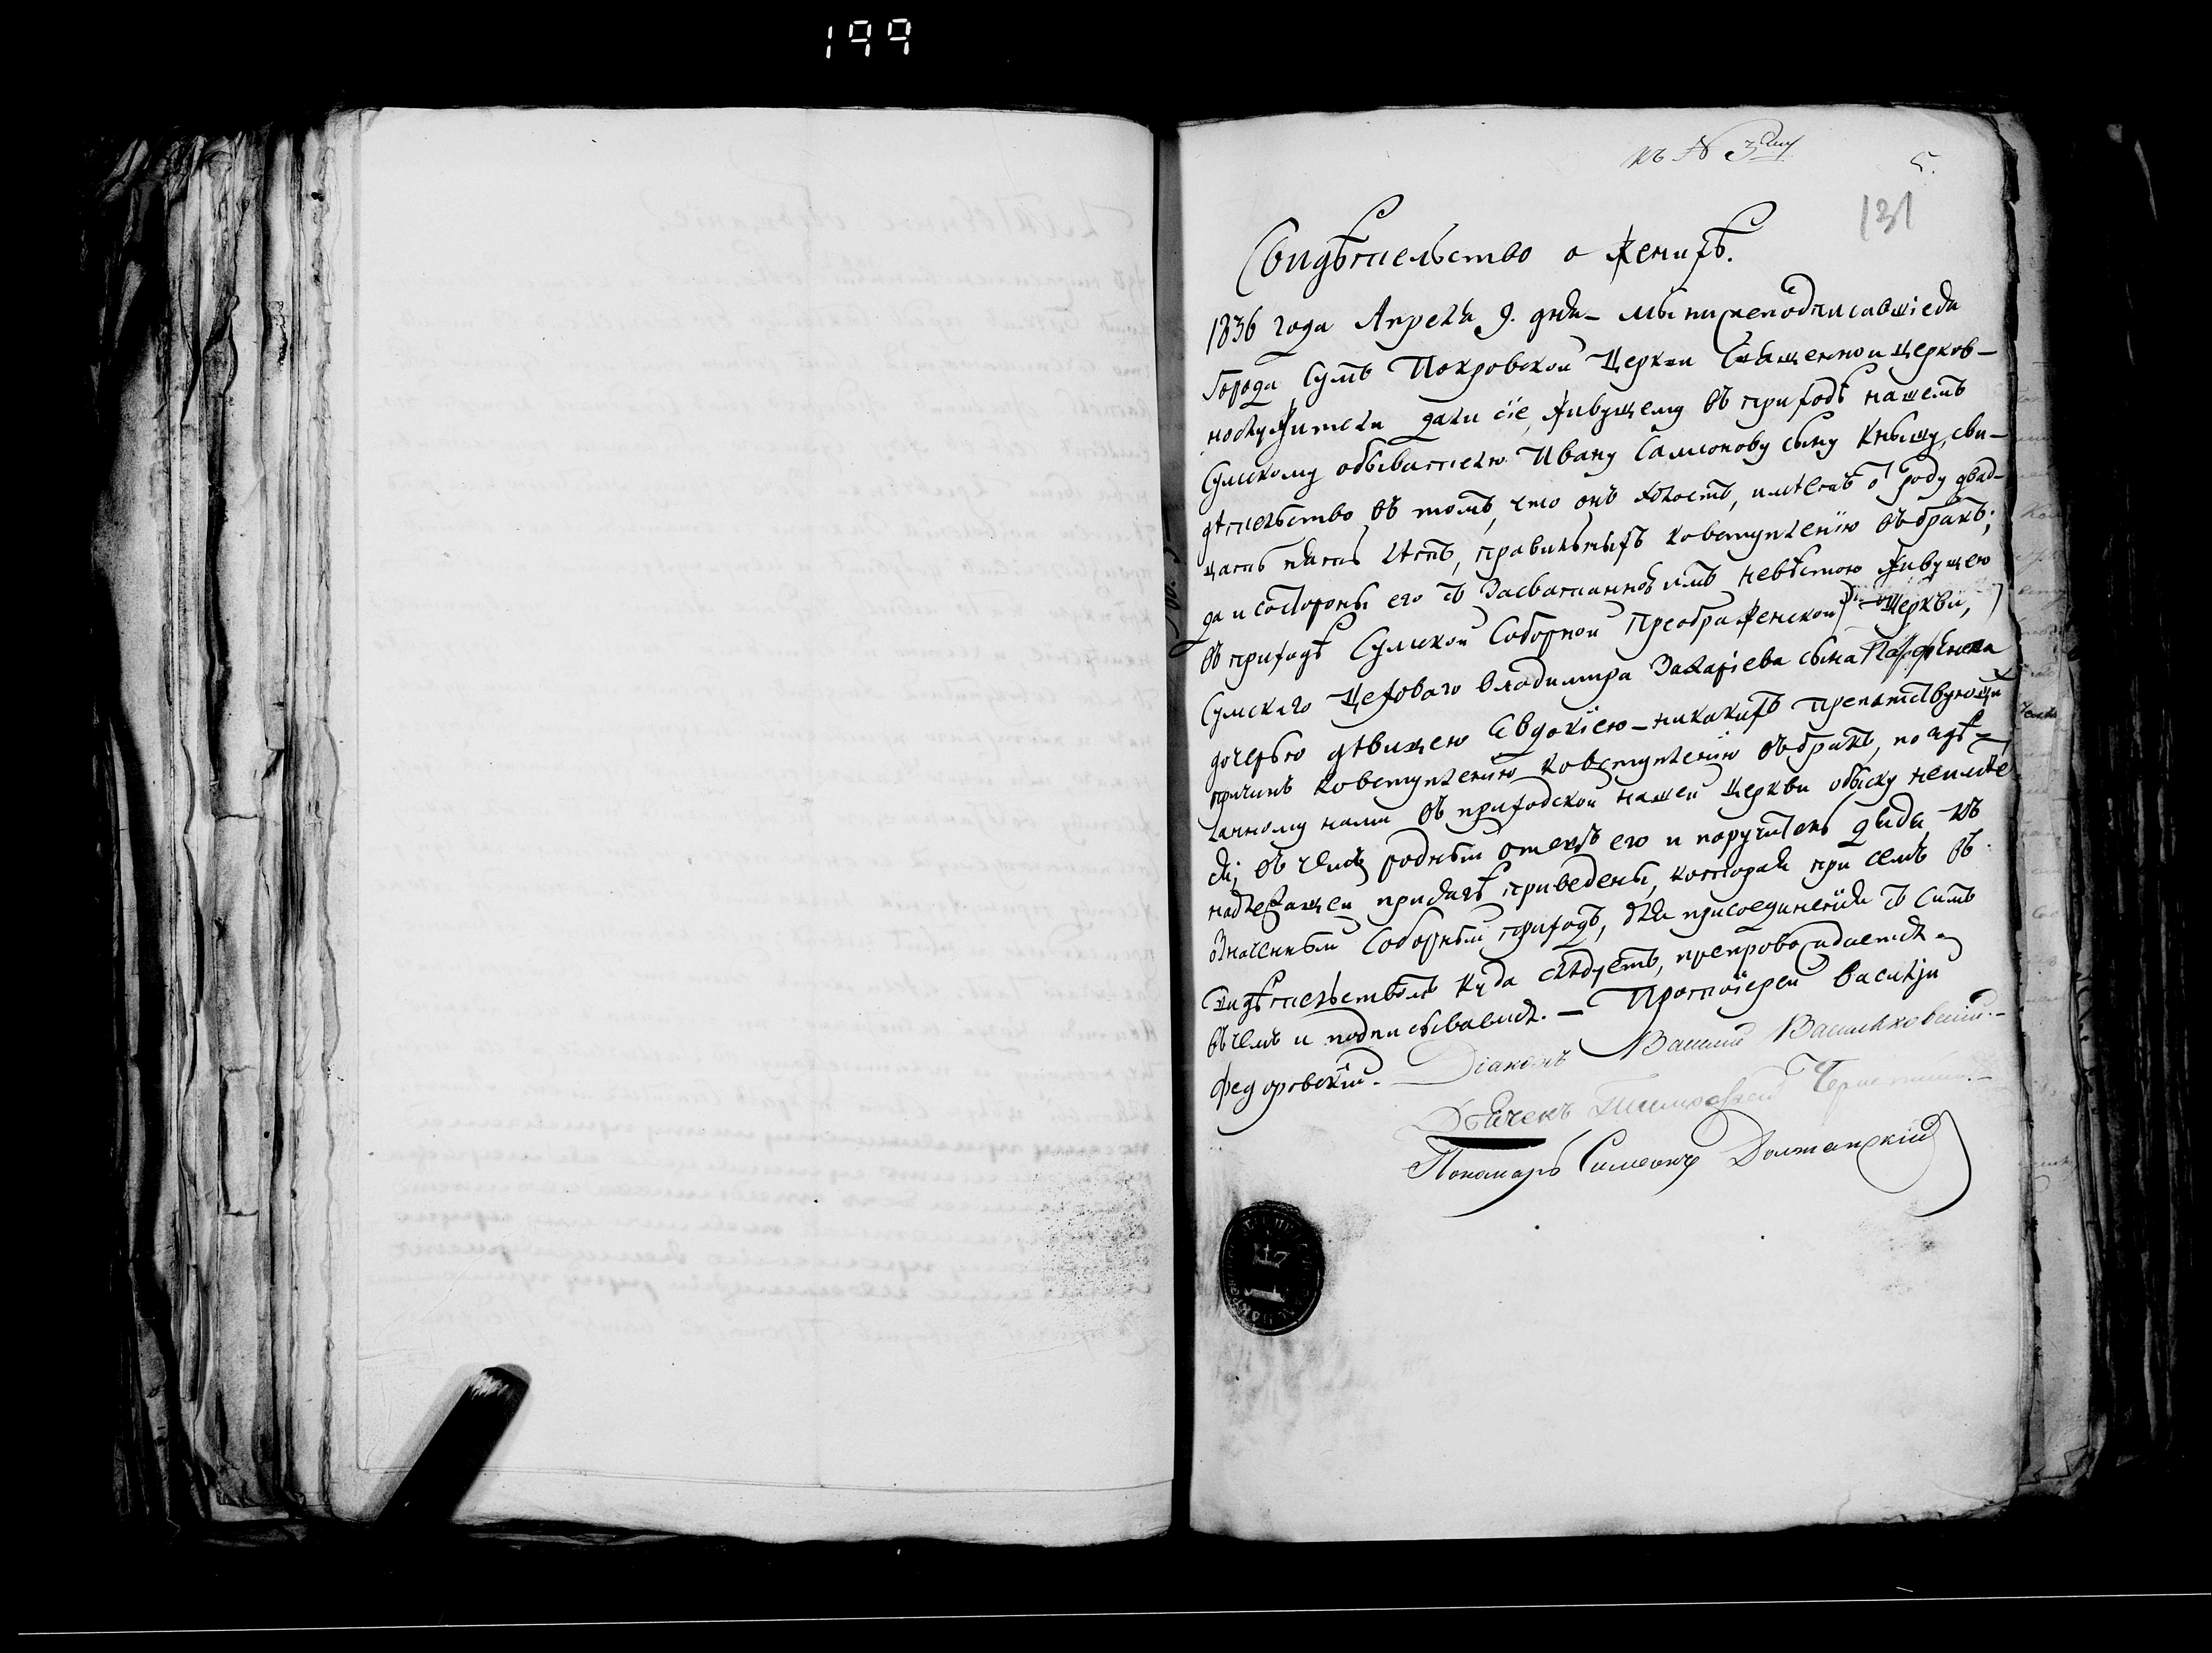 199
къ № 3му
5.
131
Свидѣтельство о женихѣ.
1836 года Апреля 9. дня – мы нижеподписавшіеся
города Сумъ Покровской Церкви Священноицерков–
нослужители дали сіе, живущему въ приходѣ нашемъ
Сумскому обывателю Ивану Самсонову сыну Кнышу, сви–
дѣтельство въ томъ, что онъ холостъ, имѣетъ о роду двад–
цать пять лѣтъ, правильныхъ ковступленію въбракъ;
да и состороны его съ Засватанною имъ невѣстою живущею
въ приходѣ Сумской Соборной Преображенской Церкви,
Сумскаго Цеховаго Владимира Захаріева сына
дочерью дѣвицею Евдокіею – никакихъ препятствующи
причинъ ковступленію ковступленію въбракъ, по здѣ–
ланному нами въ приходской нашей Церкви обыску неимѣе
ся; въ чемъ родный отецъ его и поручитель къ
надлежащей присягѣ приведены, которая при семъ въ
Значенный Соборный приходъ, для присоединенія съ симъ
Свидѣтельствомъ куда слѣдуетъ, препровождается
въчемъ и подписываемся. – Протоіерей Василій
Федоровскій. – Діаконъ Василій Васильковскій. –
Дьячекъ
Пономарь Симеонъ Должанскій